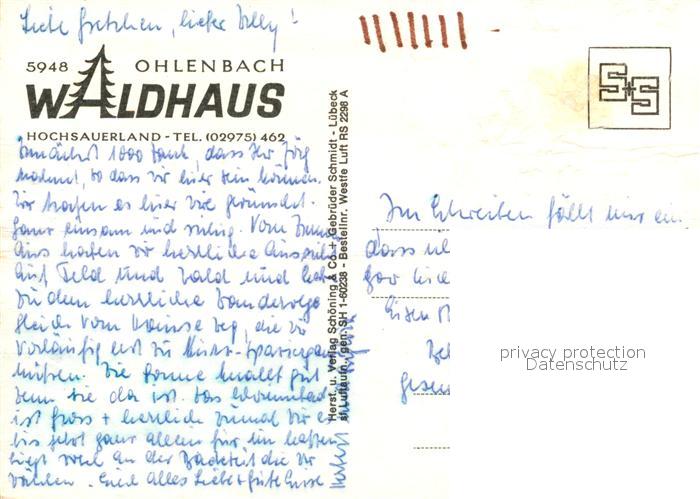 Liebe Gretchen, lieber Willy!
5948 OHLENBACH
WALDHAUS
HOCHSAUERLAND - TEL. (02975) 462
zunächst 1000 Dank, dass Ihr Jörg
nahmt, so dass wir hier sein können.
Wir haben es hier
ganz einsam und ruhig. Vom
aus haben wir herrliche Aussicht
auf Feld und Wald und
zu dem herrliche Wanderwege
gleich vom Hause weg, die wir
vorläufig erst zu
müssen. Die Sonne knallt gut
wenn sie da ist. Das Schwimmbad
ist gross + herrlich zumal wir es
bis jetzt ganz allein für uns hatten
liegt wohl an der Badezeit die wir
wählen. Euch alles Liebe + gute Grüsse
Herst. u. Verlag Schöning & Co + Gebrüder Schmidt - Lübeck
sf. Luftaufn., gen. SH 1-60238 - Bestellnr. Westfe Luft RS 2298 A
S+S
Im Schreiben fällt mir ein
dass
gar
privacy protection
Datenschutz